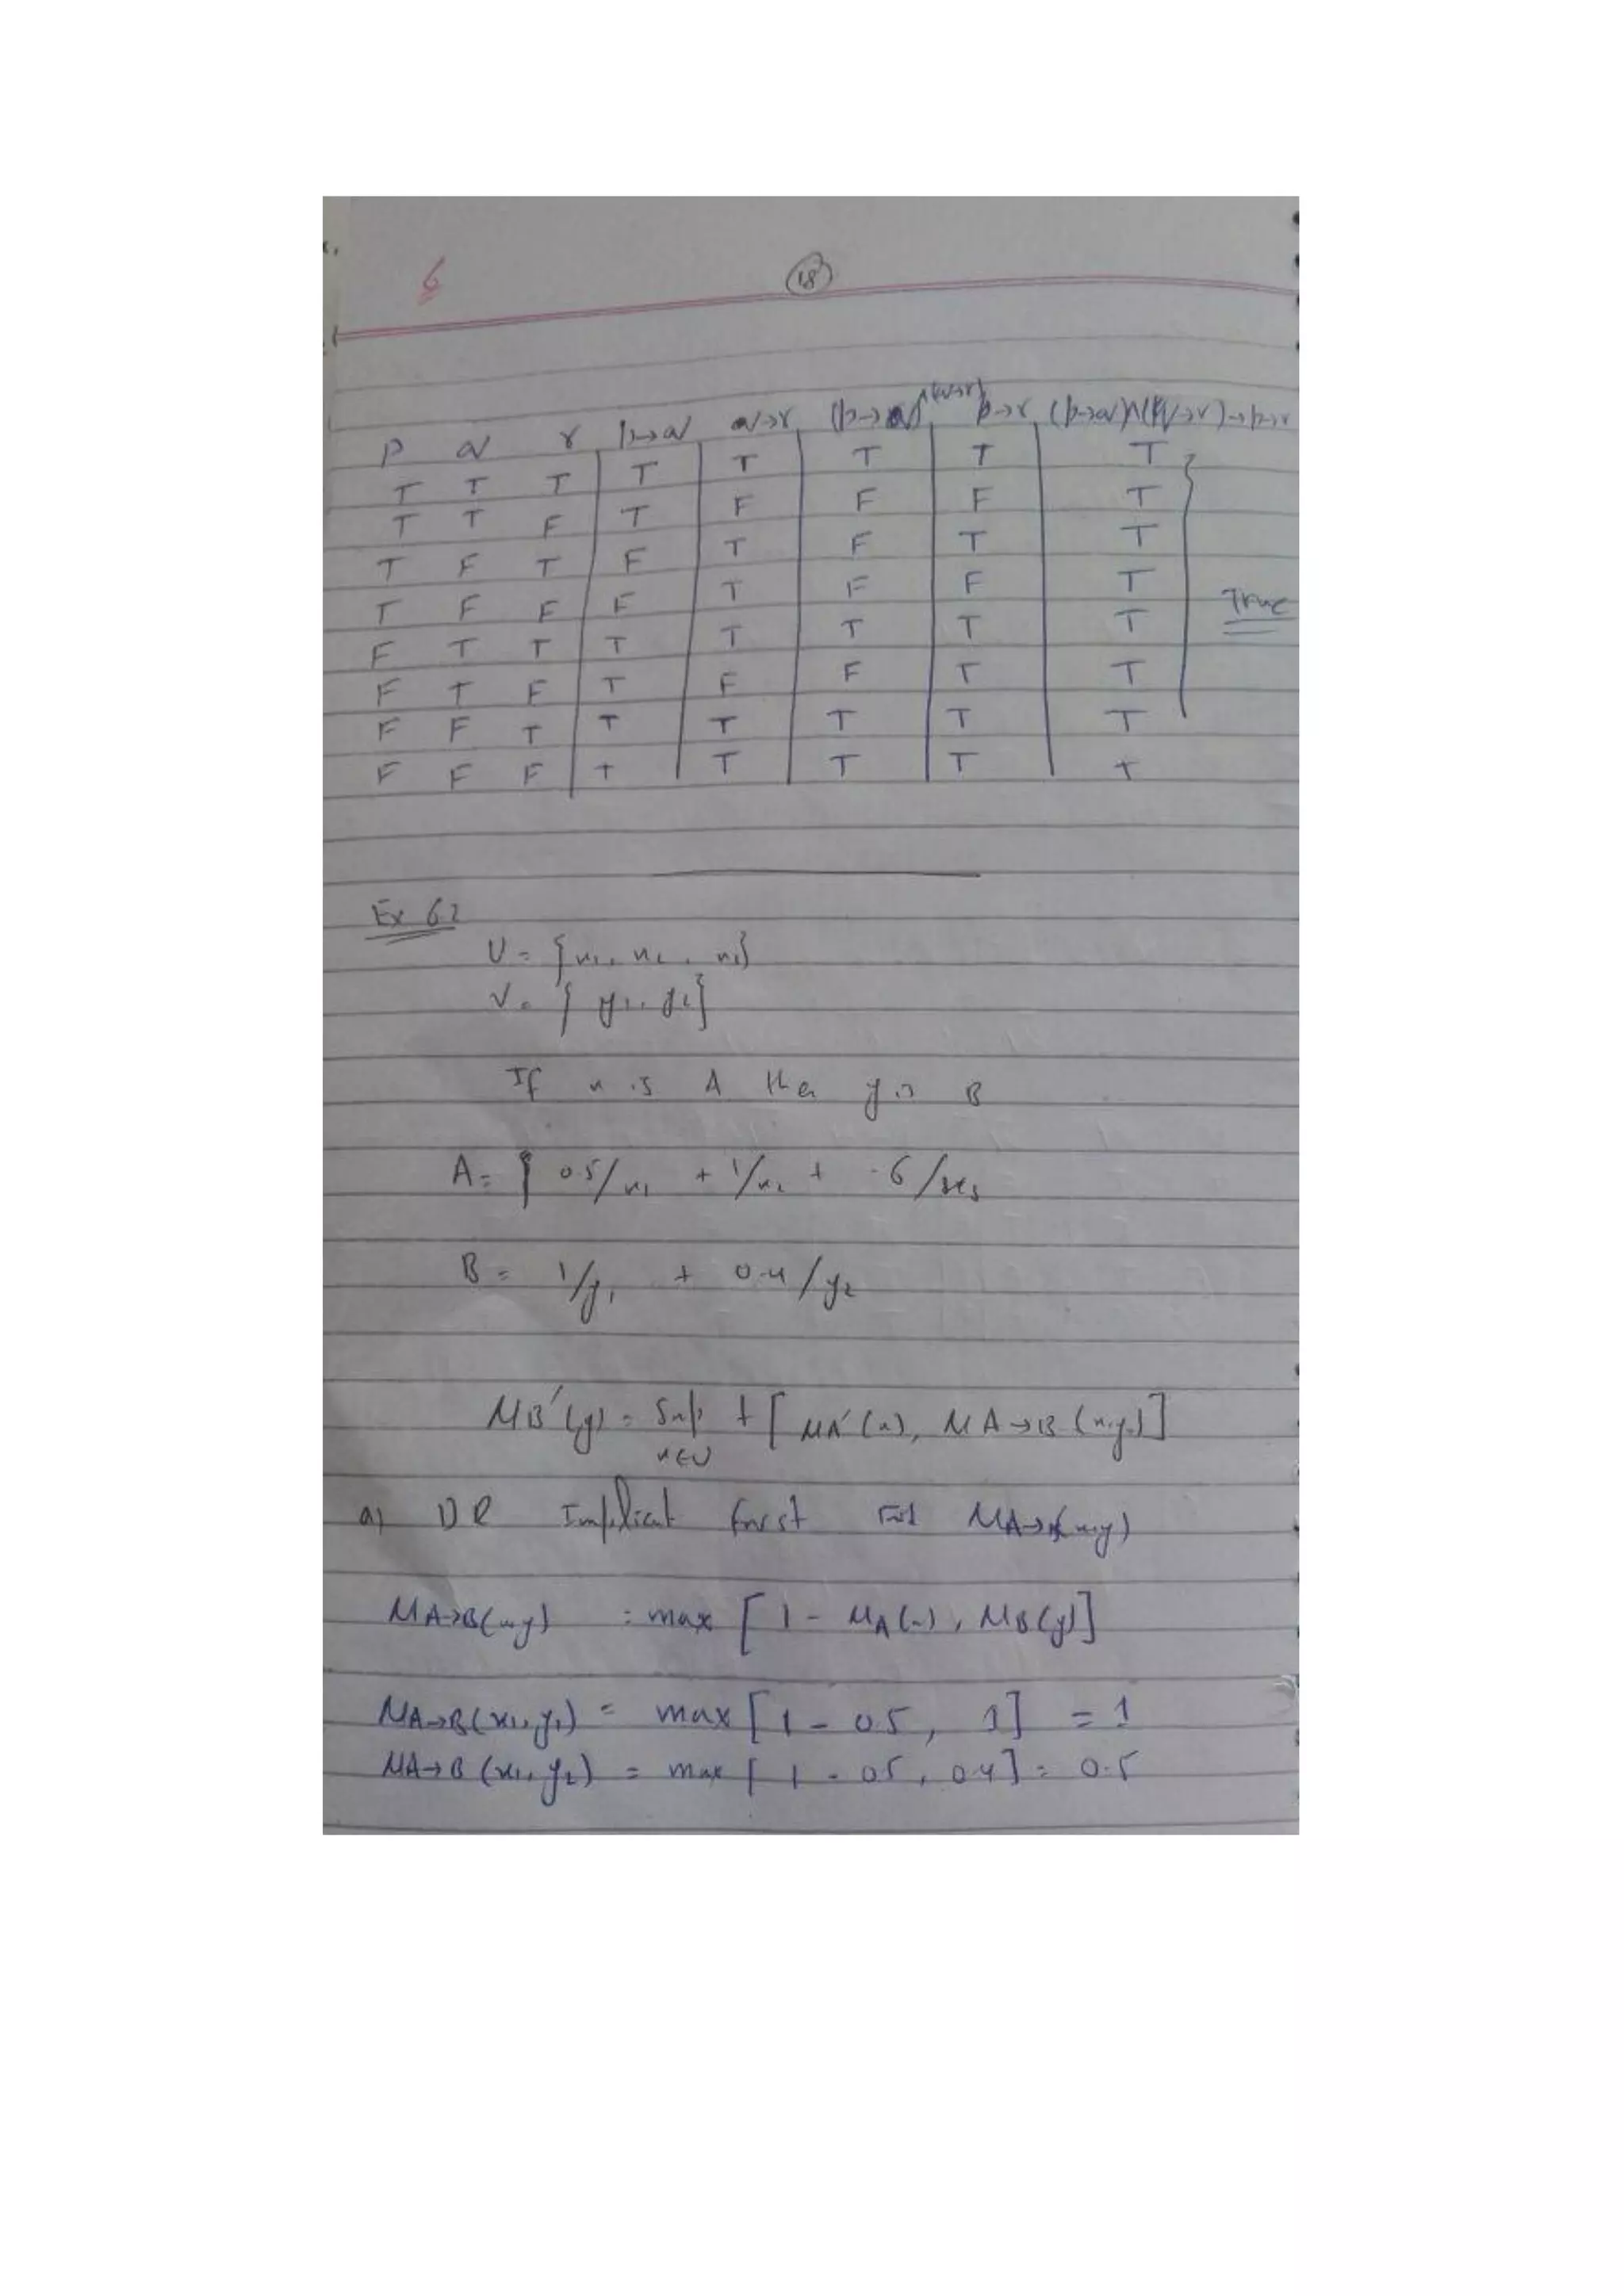 6
18
P q r p→q q→r (p→q)∧(q→r) p→r (p→q)∧(q→r)→p→r
T T T T T T T T
T T F T F F F T
T F T F T F T T
T F F F T F F T
F T T T T T T T
F T F T F F T T
F F T T T T T T
F F F T T T T T
True
Ex 6.2
U = {x1, x2, x3}
V = { y1, y2}
If x is A then y is B
A = { 0.5/x1 + 1/x2 + .6/x3
B = 1/y1 + 0.4/y2
μB'(y) = Sup t [ μA'(x), μA→B (x,y)]
x∈U
a) DR Implicat first Find μA→B(x,y)
μA→B(x,y) = max [ 1 - μA(x), μB(y)]
μA→B(x1,y1) = max [1 - 0.5, 1] = 1
μA→B (x1, y2) = max [ 1 - 0.5, 0.4] = 0.5